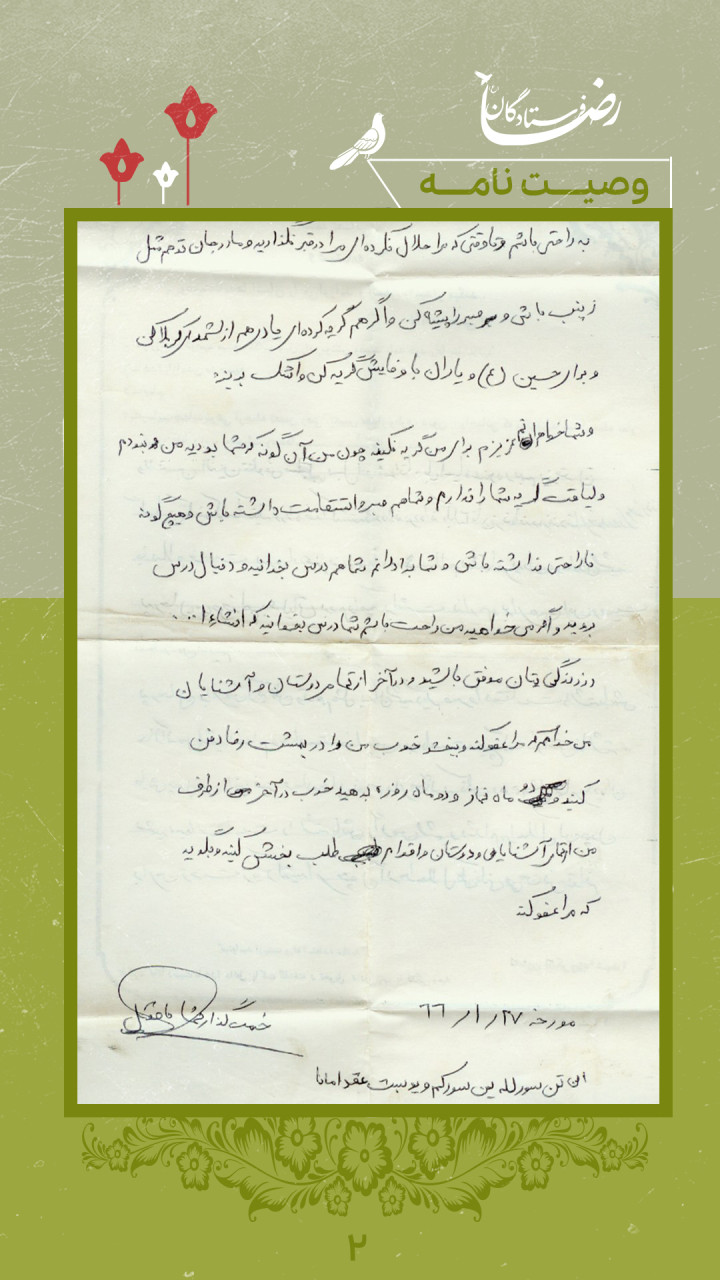 فرستادگان رضا
وصیت نامه
به راحتی باشم و تا وقتی که مرا حلال نکرده‌ای مرا در قبر نگذارید و مادر جان تو هم مثل
زینب باش و صبر را پیشه کن و اگر هم گریه کرده‌ای یادی هم از شهدای کربلا کن
و برای حسین (ع) و یاران با وفایش گریه کن و اشک بریز.
و شما خواهرانم عزیزم برای من گریه نکنید چون من آن گونه که شما بودید من نبودم
و لیاقت گریه شما را ندارم و شما هم صبر و استقامت داشته باش و هیچ گونه
ناراحتی نداشته باش و شما برادرانم شما هم درس بخوانید و دنبال درس
بروید و اگر می خواهید من راحت باشم شما درس بخوانید که انشاء ا...
در زندگی تان موفق باشید و در آخر از تمام دوستان و آشنایان
می خواهم که مرا عفو کنند و ببخشند خوب من را در بهشت رضا دفن
کنید و دو ماه نماز و دو ماه روزه بدهید خوب در آخر از طرف
من از تمام آشنایان و دوستان و اقوام طلب بخشش کنید و بگوید
که مرا عفو کنند
مورخه ۲۷/۱/۶۶
خدمتگذار شما
۲